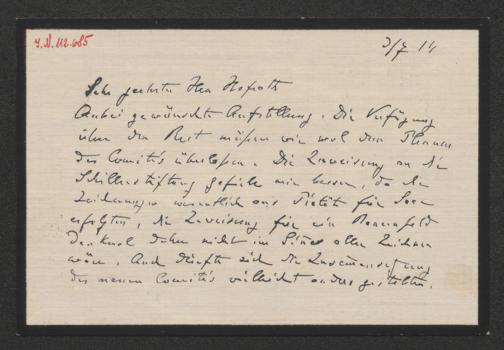 I.N. 112.685
3/7 14
Sehr geehrter Herr Hofrath
Anbei gewünschte Aufstellung. Die Verfügung
über den Rest müssen wir wol dem Plenum
des Comités überlassen. Die Zuweisung an die
Schillerstiftung gefiele mir besser, da die
Zeichnungen wesentlich aus Pietät für Saar
erfolgten, die Zuweisung für ein Bauernfeld
Denkmal daher nicht im Sinne aller Zeichner
wäre. Auch dürfte sich die Zusammensetzung
des neuen Comités vielleicht anders gestalten.